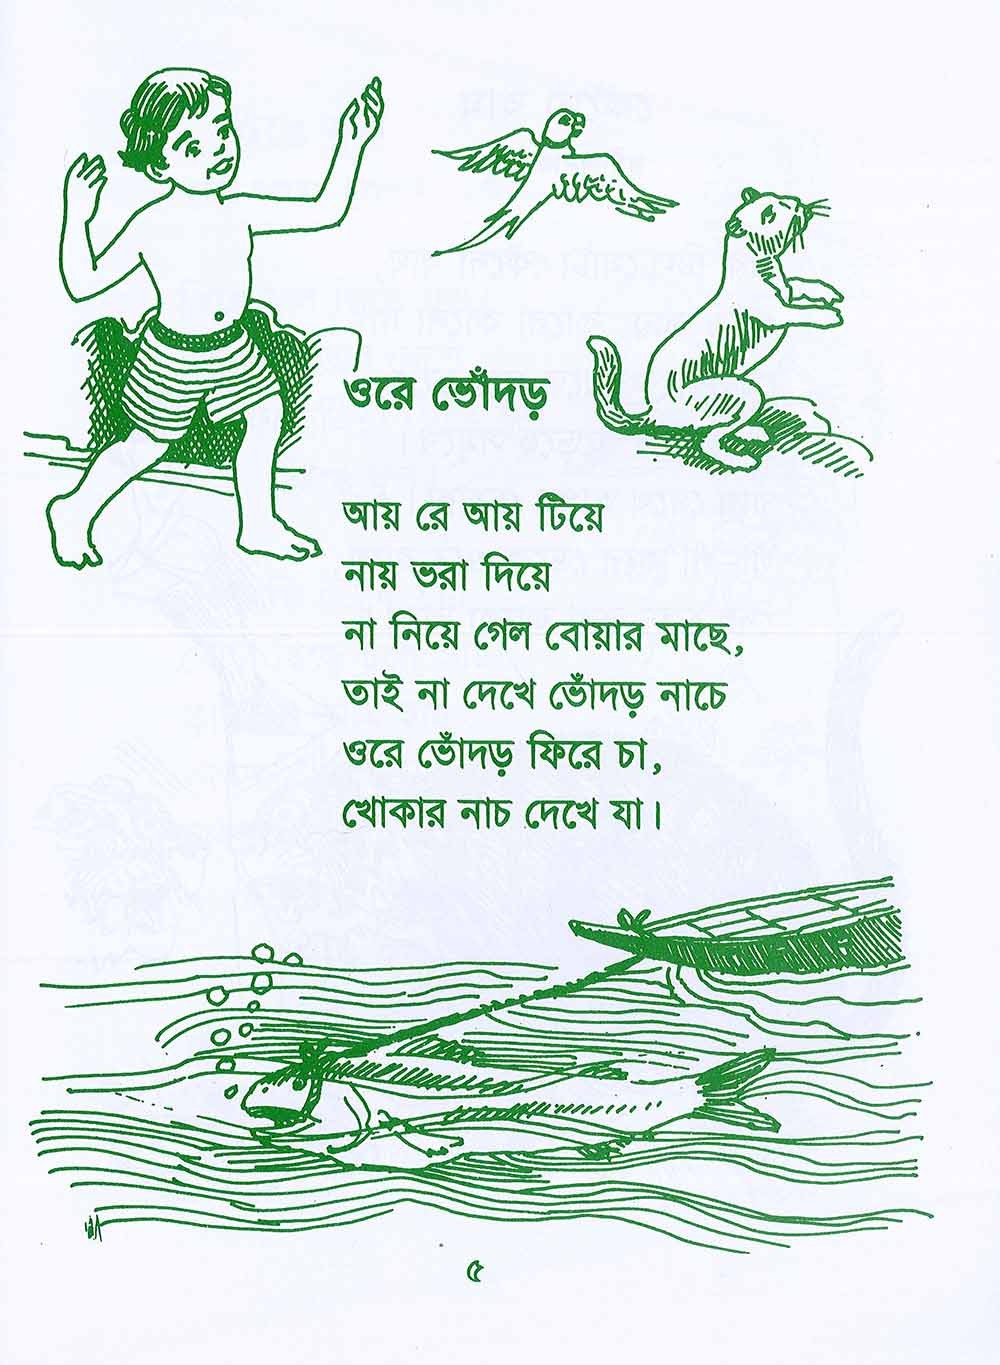 ওরে ভোঁদড়
আয় রে আয় টিয়ে
নায় ভরা দিয়ে
না নিয়ে গেল বোয়ার মাছে,
তাই না দেখে ভোঁদড় নাচে
ওরে ভোঁদড় ফিরে চা,
খোকার নাচ দেখে যা।
৫